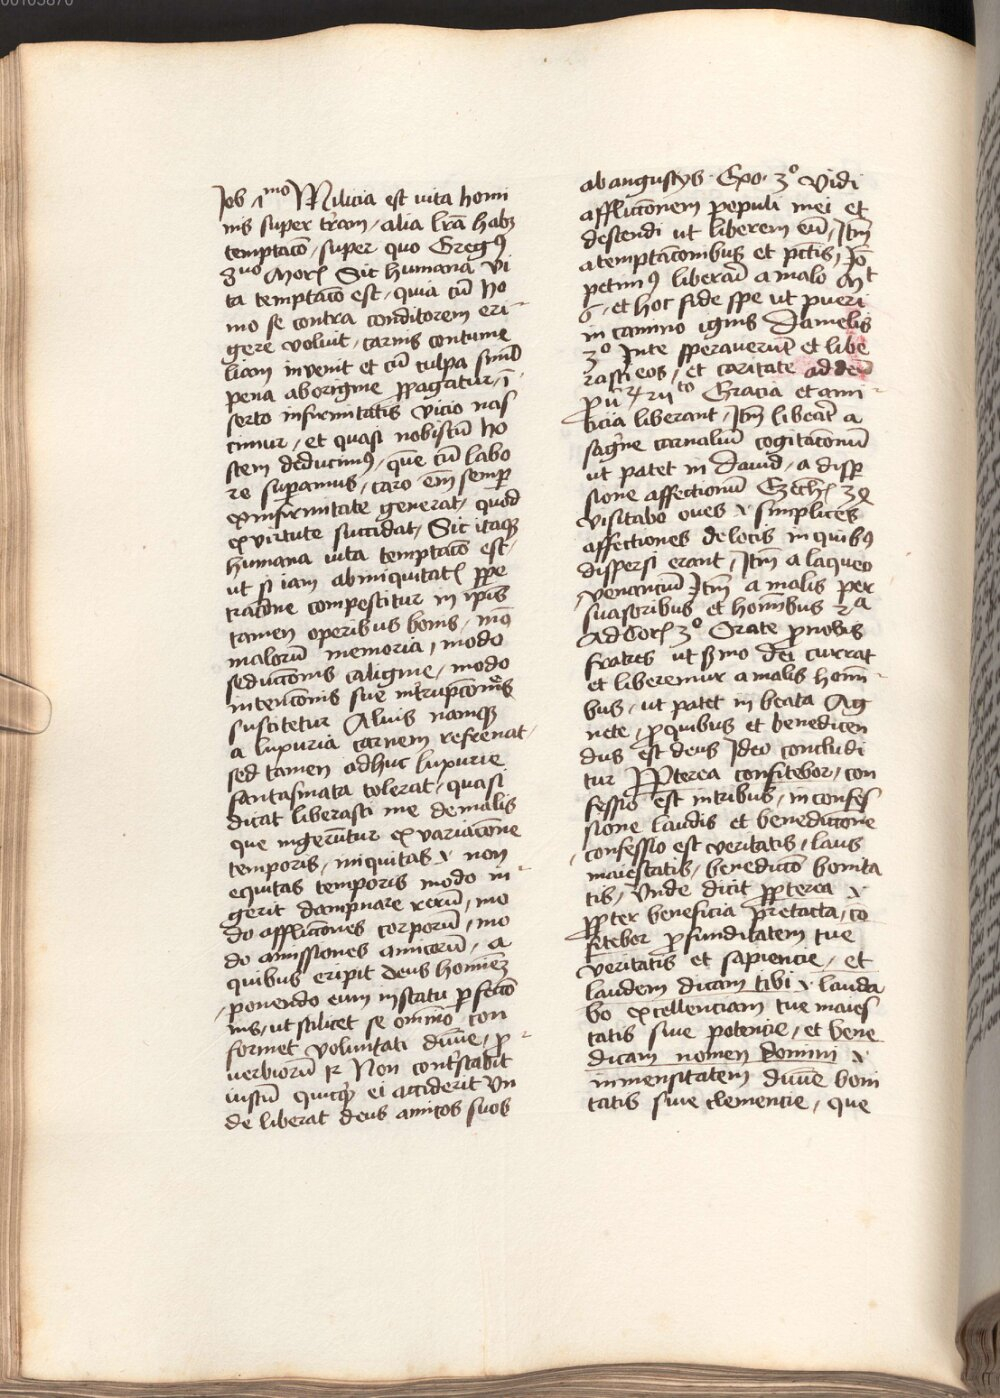 00105870
Job 1mo Milicia est uita homi
nis super tr̄am / alia lr̄a habꝫ
temptaco̅ / super quo Gregꝰ
3uo Morꝭ Sic humana vi
ta temptaco̅ est / quia cu̅ ho
mo se contra conditorem eri¨
gere voluit / carnis contume
liam invenit et cu̅ culpa simul
pena aborigine p̱pagatur / i̅
serto infirmitatis vicio nas
cimur / et quasi nobiscu̅ ho
stem deducimꝰ / que̅ cu̅ labo
re suꝑamus / caro em̅ semꝑ
exinfirmitate generat / quod
exvirtute succidat / Sic itaqꝫ
humana uita temptaco̅ est /
ut si iam abiniquitatꝭ ꝑpe
tracōne compescitur in ip̅is
tamen operibus bonis / mo̊
maloru̅ memoria / modo
seducco̅nis caligine / modo
intenco̅nis sue int̾rupco̅nis
suscitetur Aluis namqꝫ
a luxuria carnem refrenat /
sed tamen adhuc luxurie
fantasmata tolerat / quasi
dicat liberasti me demalis
que ingeru̅tur exvariaco̅ne
temporis / iniquitas & non
equitas temporis modo in¨
gerit dampnare reru̅ / mo
do afflicco̅nes corporu̅ / mo
do amissiones amicoru̅ / a
quibus eripit deus homine̅
ponendo eum instatu ꝑfecco̅
nis / ut scilicet se omni̅o con
formet voluntati diui̅e / p̱
uerbioru̅ 12 Non cont̾stabit
iustu̅ quicqͥd ei acciderit Un
de liberat deus amicos suos
abangustijs · Exo · 3o Vidi
afflicco̅nem populi mei et
descendi ut liberem eu̅ / Itm̅
atemptaco̅nibus et pctis̅ / Io̅
petimꝰ liberari amalo Mt
6 / et hoc fide spe ut pueri
in camino ignis Danielis
3o Inte speraueru̅t et libe
rasti eos / et caritate addeu̅
Gracia et ami¨
ticia liberant / Itm̅ liberat̾ a
sagi̅ne carnaliu̅ cogitaco̅nu̅
ut patet in dauid / a disꝑ
sione affectionu̅ Ezechꝭ 34
visitabo oues & simplices
affectiones delocis inquibꝰ
dispersi erant / Itm̅ a laqueo
venanciu̅ Itm̅ a malis per
suasoribus et homi̅bus 2a
Ad Corꝭ 3o Orate ꝓnobis
fratres ut sꝫmo dei currat
et liberemur amalis homi̅¨
bus / ut patet in beata Ag
nete / ꝓquibus et benedicen
dus est deus Ideo concludi
tur Ꝓpterea confitebor / con
fessio est intribus / inconfes
sione laudis et benedicco̅ne
confessio est veritatis / laus
maiestatis / benedicco̅ bonita
tis / Unde dicit ꝓpterea &
ꝓpter beneficia pretacta / co̅
fitebor ꝓfunditatem tue
veritatis et sapiencie / et
laudem dicam tibi & lauda
bo excellenciam tue maies
tatis siue potencie / et bene
dicam nomen domini &
inmensitatem diui̅e boni
tatis siue clemencie / que